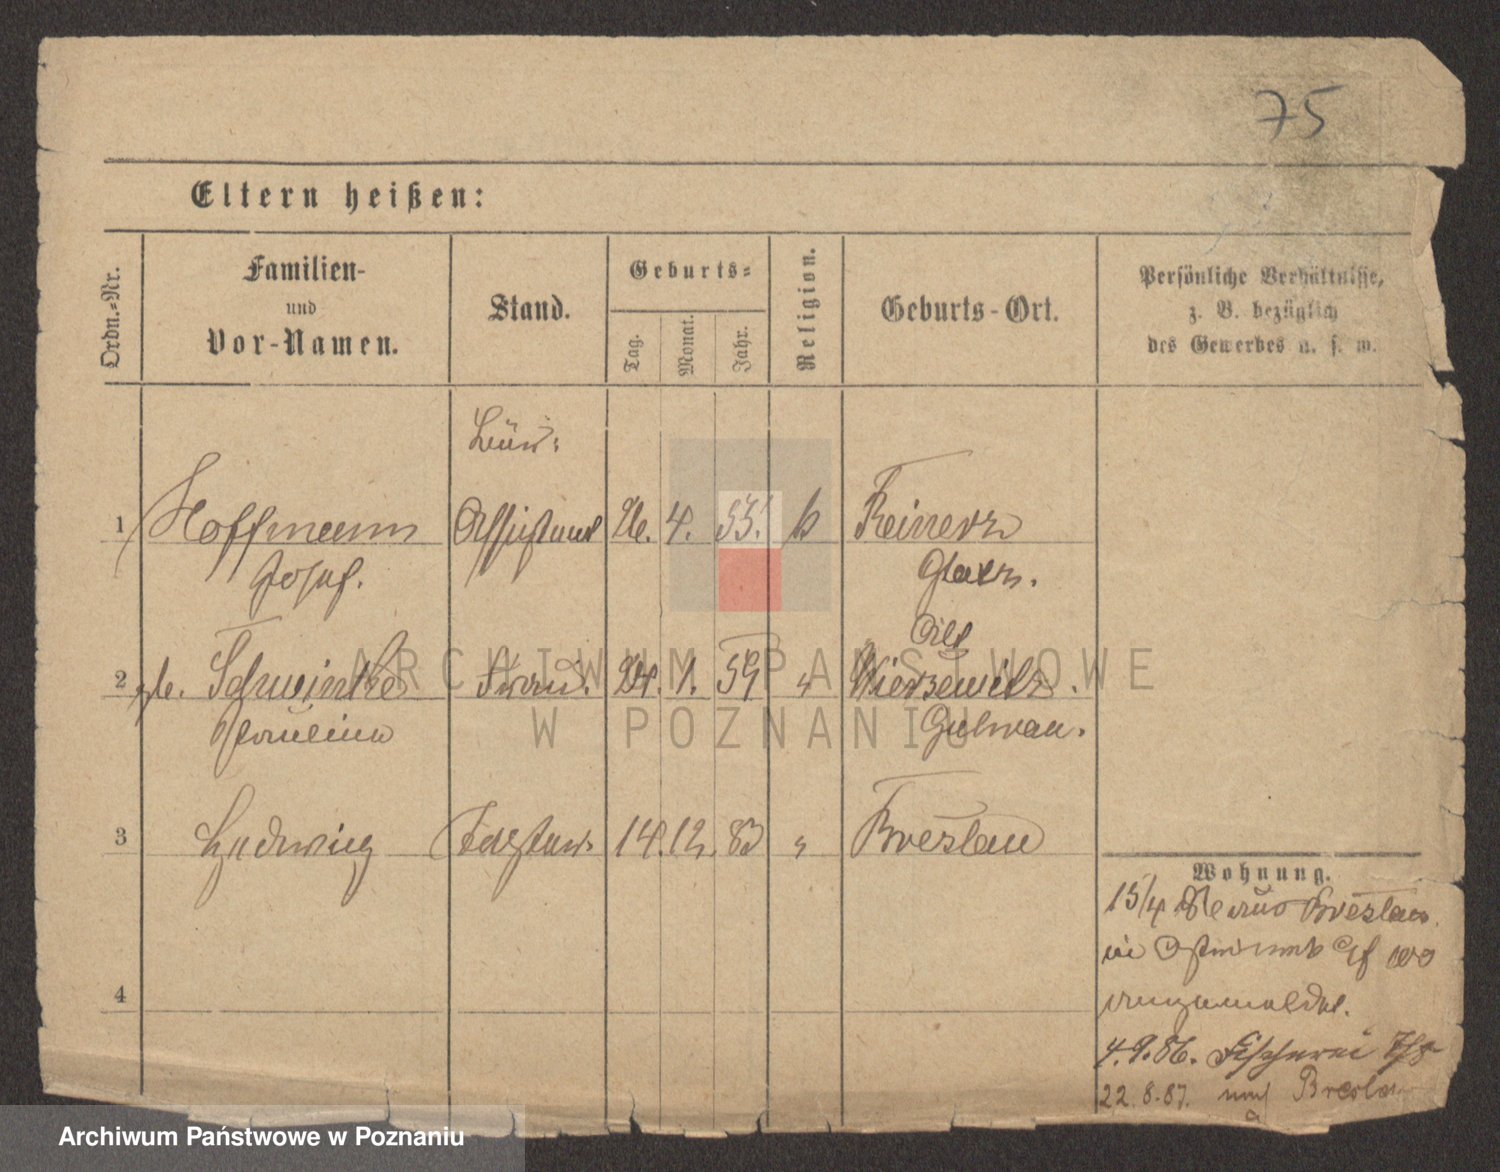 75
Eltern heißen:
Ordn.-Nr.
Familien-
und
Vor-Namen.
Stand.
Geburts-
Tag.
Monat.
Jahr.
Religion.
Geburts-Ort.
Persönliche Verhältnisse,
z. B. bezüglich
des Gewerbes u. s. w.
Büro:
1 Hoffmann Assistent 26. 4. 53. k Reinerz
Josef. Glatz.
Alt
2 gb. Schwintke Frau. 24. 1. 59 " Wierzewitz.
Pauline Guhrau.
3 Hedwig Tochter 14. 12. 83 " Breslau
Wohnung.
15/4 Breslau
in
angemeldet.
4
4.9.86. Fischerei 7/8
22.8.87. nach Breslau
ARCHIWUM PAŃSTWOWE
W POZNANIU
Archiwum Państwowe w Poznaniu